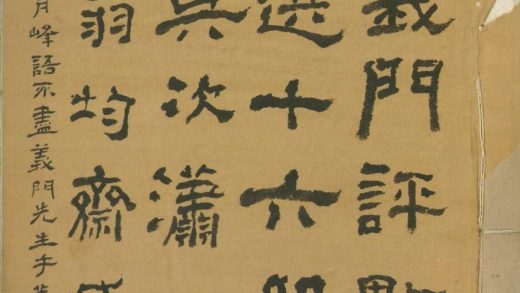 義門評點
選十六
吳次瀟
翁均齋
月峰語不盡義門先生手